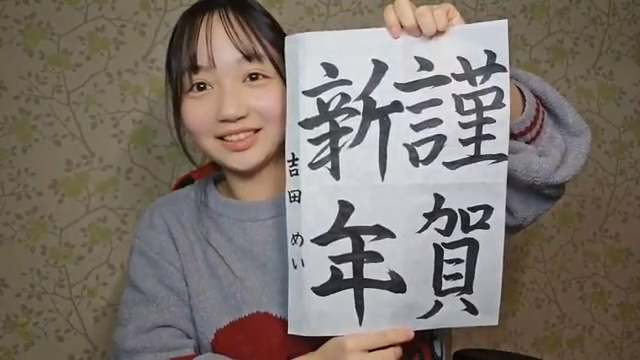 謹賀
新年
吉田 めい